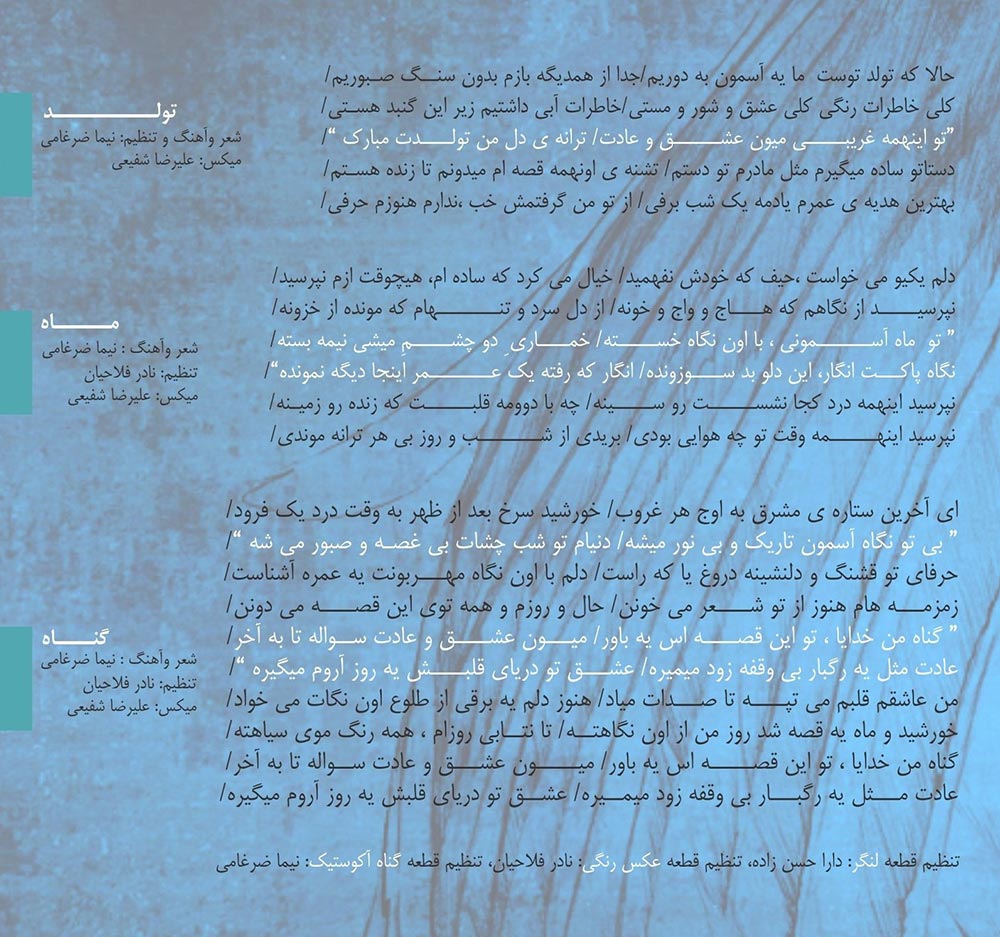 حالا که تولد توست ما یه آسمون به دوریم/جدا از همدیگه بازم بدون سنگ صبوریم/
کلی خاطرات رنگی کلی عشق و شور و مستی/خاطرات آبی داشتیم زیر این گنبد هستی/
"تو اینهمه غریبی میون عشق و عادت/ ترانه ی دل من تولدت مبارک "/
دستاتو ساده میگیرم مثل مادرم تو دستم/ تشنه ی اونهمه قصه ام میدونم تا زنده هستم/
بهترین هدیه ی عمرم یادمه یک شب برفی/ از تو من گرفتمش خب ،ندارم هنوزم حرفی/
تولد
شعر وآهنگ و تنظیم: نیما ضرغامی
میکس: علیرضا شفیعی
دلم یکیو می خواست ،حیف که خودش نفهمید/ خیال می کرد که ساده ام، هیچوقت ازم نپرسید/
نپرسید از نگاهم که هاج و واج و خونه/ از دل سرد و تنهام که مونده از خزونه/
" تو ماه آسمونی ، با اون نگاه خسته/ خماریِ دو چشمِ میشی نیمه بسته/
نگاه پاکت انگار، این دلو بد سوزونده/ انگار که رفته یک عمر اینجا دیگه نمونده"/
نپرسید اینهمه درد کجا نشست رو سینه/ چه با دوومه قلبت که زنده رو زمینه/
نپرسید اینهمه وقت تو چه هوایی بودی/ بریدی از شب و روز بی هر ترانه موندی/
ماه
شعر وآهنگ : نیما ضرغامی
تنظیم: نادر فلاحیان
میکس: علیرضا شفیعی
ای آخرین ستاره ی مشرق به اوج هر غروب/ خورشید سرخ بعد از ظهر به وقت درد یک فرود/
" بی تو نگاه آسمون تاریک و بی نور میشه/ دنیام تو شب چشات بی غصه و صبور می شه "/
حرفای تو قشنگ و دلنشینه دروغ یا که راست/ دلم با اون نگاه مهربونت یه عمره آشناست/
زمزمه هام هنوز از تو شعر می خونن/ حال و روزم و همه توی این قصه می دونن/
" گناه من خدایا ، تو این قصه اس یه باور/ میون عشق و عادت سواله تا به آخر/
عادت مثل یه رگبار بی وقفه زود میمیره/ عشق تو دریای قلبش یه روز آروم میگیره "/
من عاشقم قلبم می تپه تا صدات میاد/ هنوز دلم یه برقی از طلوع اون نگات می خواد/
خورشید و ماه یه قصه شد روز من از اون نگاهته/ تا نتابی روزام ، همه رنگ موی سیاهته/
گناه من خدایا ، تو این قصه اس یه باور/ میون عشق و عادت سواله تا به آخر/
عادت مثل یه رگبار بی وقفه زود میمیره/ عشق تو دریای قلبش یه روز آروم میگیره/
گناه
شعر وآهنگ : نیما ضرغامی
تنظیم: نادر فلاحیان
میکس: علیرضا شفیعی
تنظیم قطعه لنگر: دارا حسن زاده، تنظیم قطعه عکس رنگی: نادر فلاحیان، تنظیم قطعه گناه آکوستیک: نیما ضرغامی